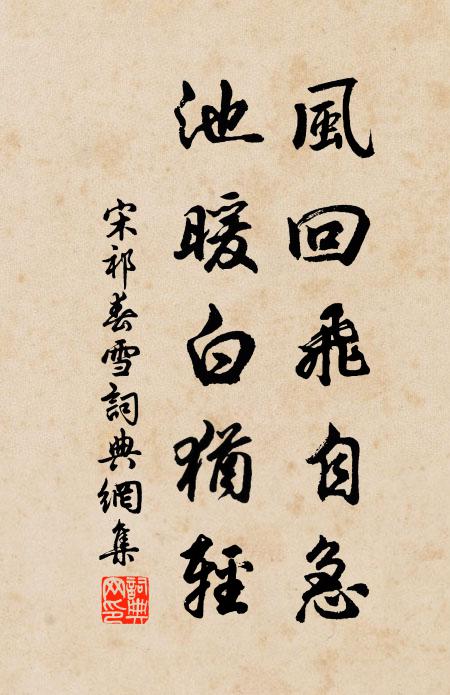 風回飛自急
池暖白猶輕
宋祁春雪詞典網集
詞典网印